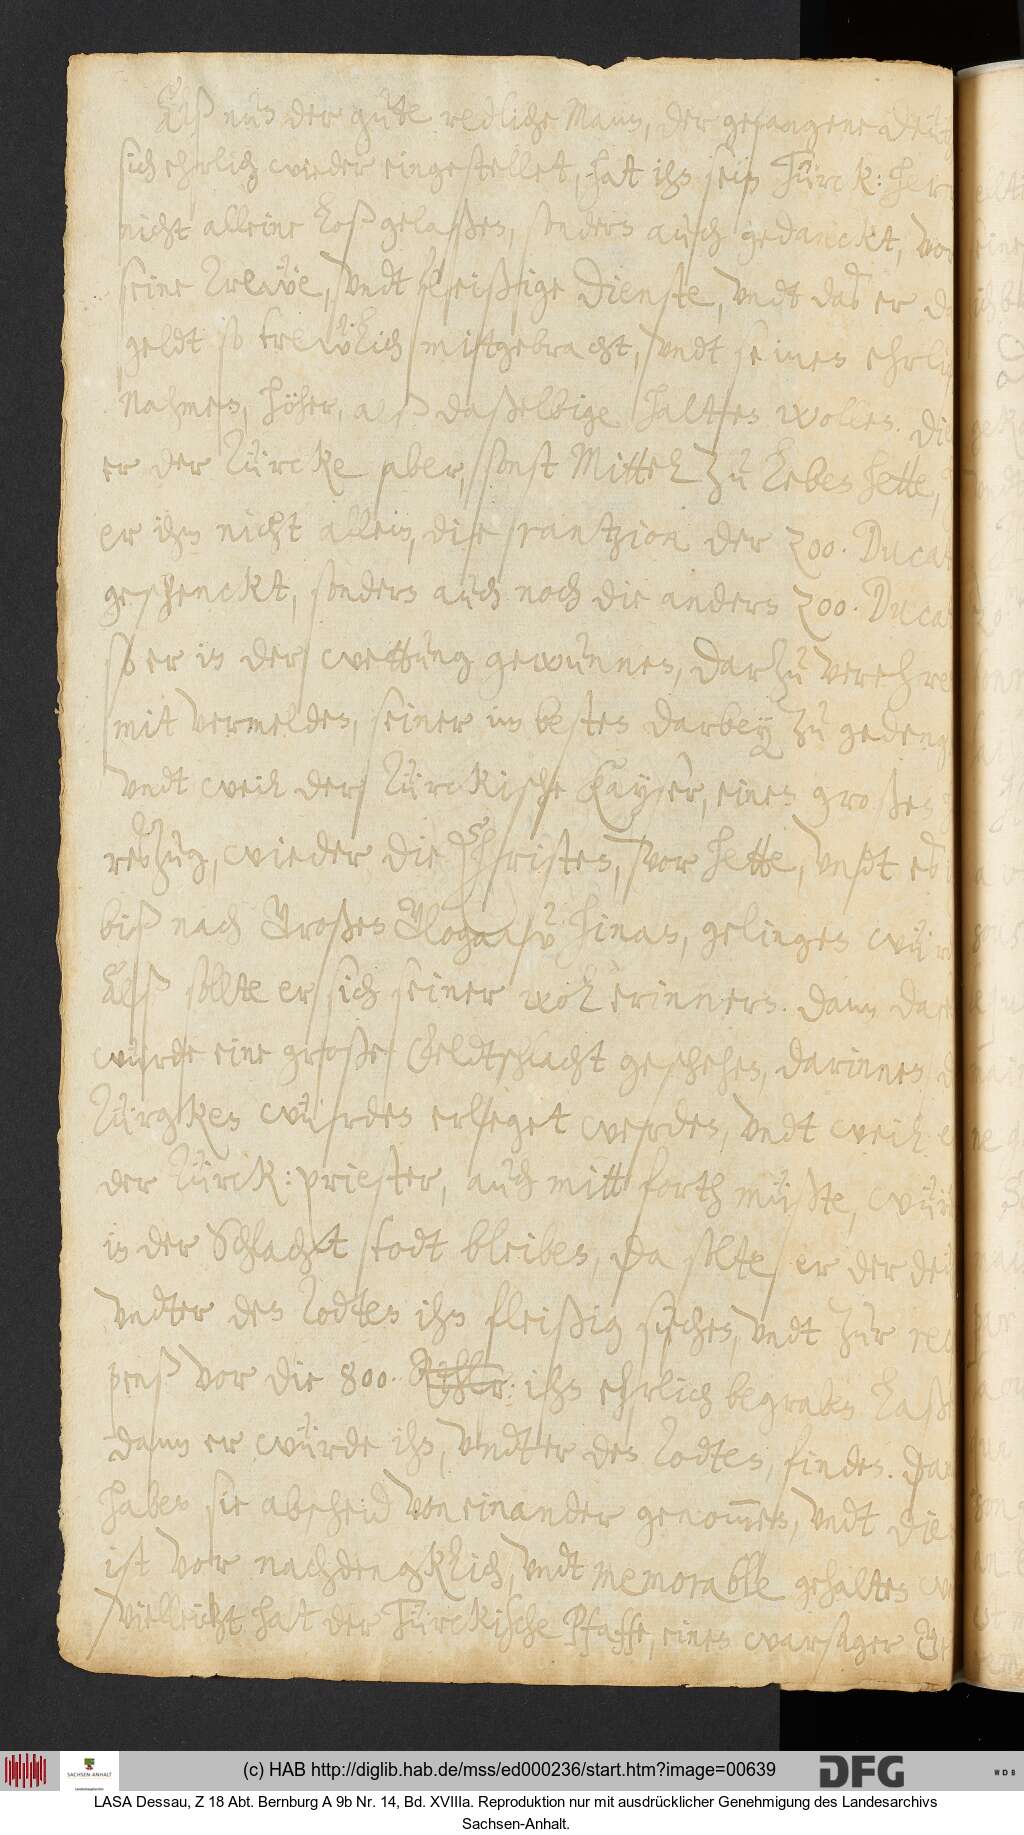 Alß nun der gute redliche Mann, der gefangene
sich ehrlich wieder eingestellet, hat ihn sein Türck: Herr
nicht alleine loß gelaßen, sondern auch gedanckt, vor
seine trewe, vndt fleißige Dienste, vndt daß er
geldt so trewlich mitgebracht, vndt seinen ehrli
Nahmen, höher, alß daßelbige halten wollen. Die
er der Türcke aber, sonst Mittel zu leben hette,
er ihm nicht allein, die rantzion der 200. Ducat
geschenckt, sondern auch noch die andern 200. Duca
so er in der wettung gewunnen, darzu verehre
mit vermelden, seiner im besten darbey zu gedeng
vndt weil der Türckische Kayser, einen großen
reützug, wieder die Christen, vor hette, vndt
biß nach Großen Glogaw hinan, gelingen wür
Alß sollte er sich seiner wol erinnern. Dann
würde eine große Veldtschlacht geschehen, darinnen
Türgken würden erleget werden, vndt weil
der Türck: priester, auch mitt forth müßte, wür
in der Schlacht todt bleiben, Da sollte er der
vndter den Todten ihn fleißig suchen, vndt zur
penß vor die 800. Rthlr: ihn ehrlich begraben laß
dann er würde ihn, vndter den Todten, finden.
haben sie abscheid von einander genom̅en, vndt die
ist vor nachdengklich, vndt memorable gehalten
Vielleicht hat der Türckische Pfaffe, einen warsager
(c) HAB http://diglib.hab.de/mss/ed000236/start.htm?image=00639
DFG
WDB
SACHSEN-ANHALT
LASA Dessau, Z 18 Abt. Bernburg A 9b Nr. 14, Bd. XVIIIa. Reproduktion nur mit ausdrücklicher Genehmigung des Landesarchivs
Sachsen-Anhalt.